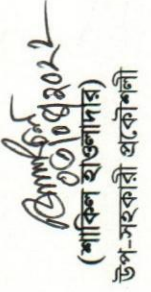 ০৩/০৪/২০২২
(শাকিল হাওলাদার)
উপ-সহকারী প্রকৌশলী